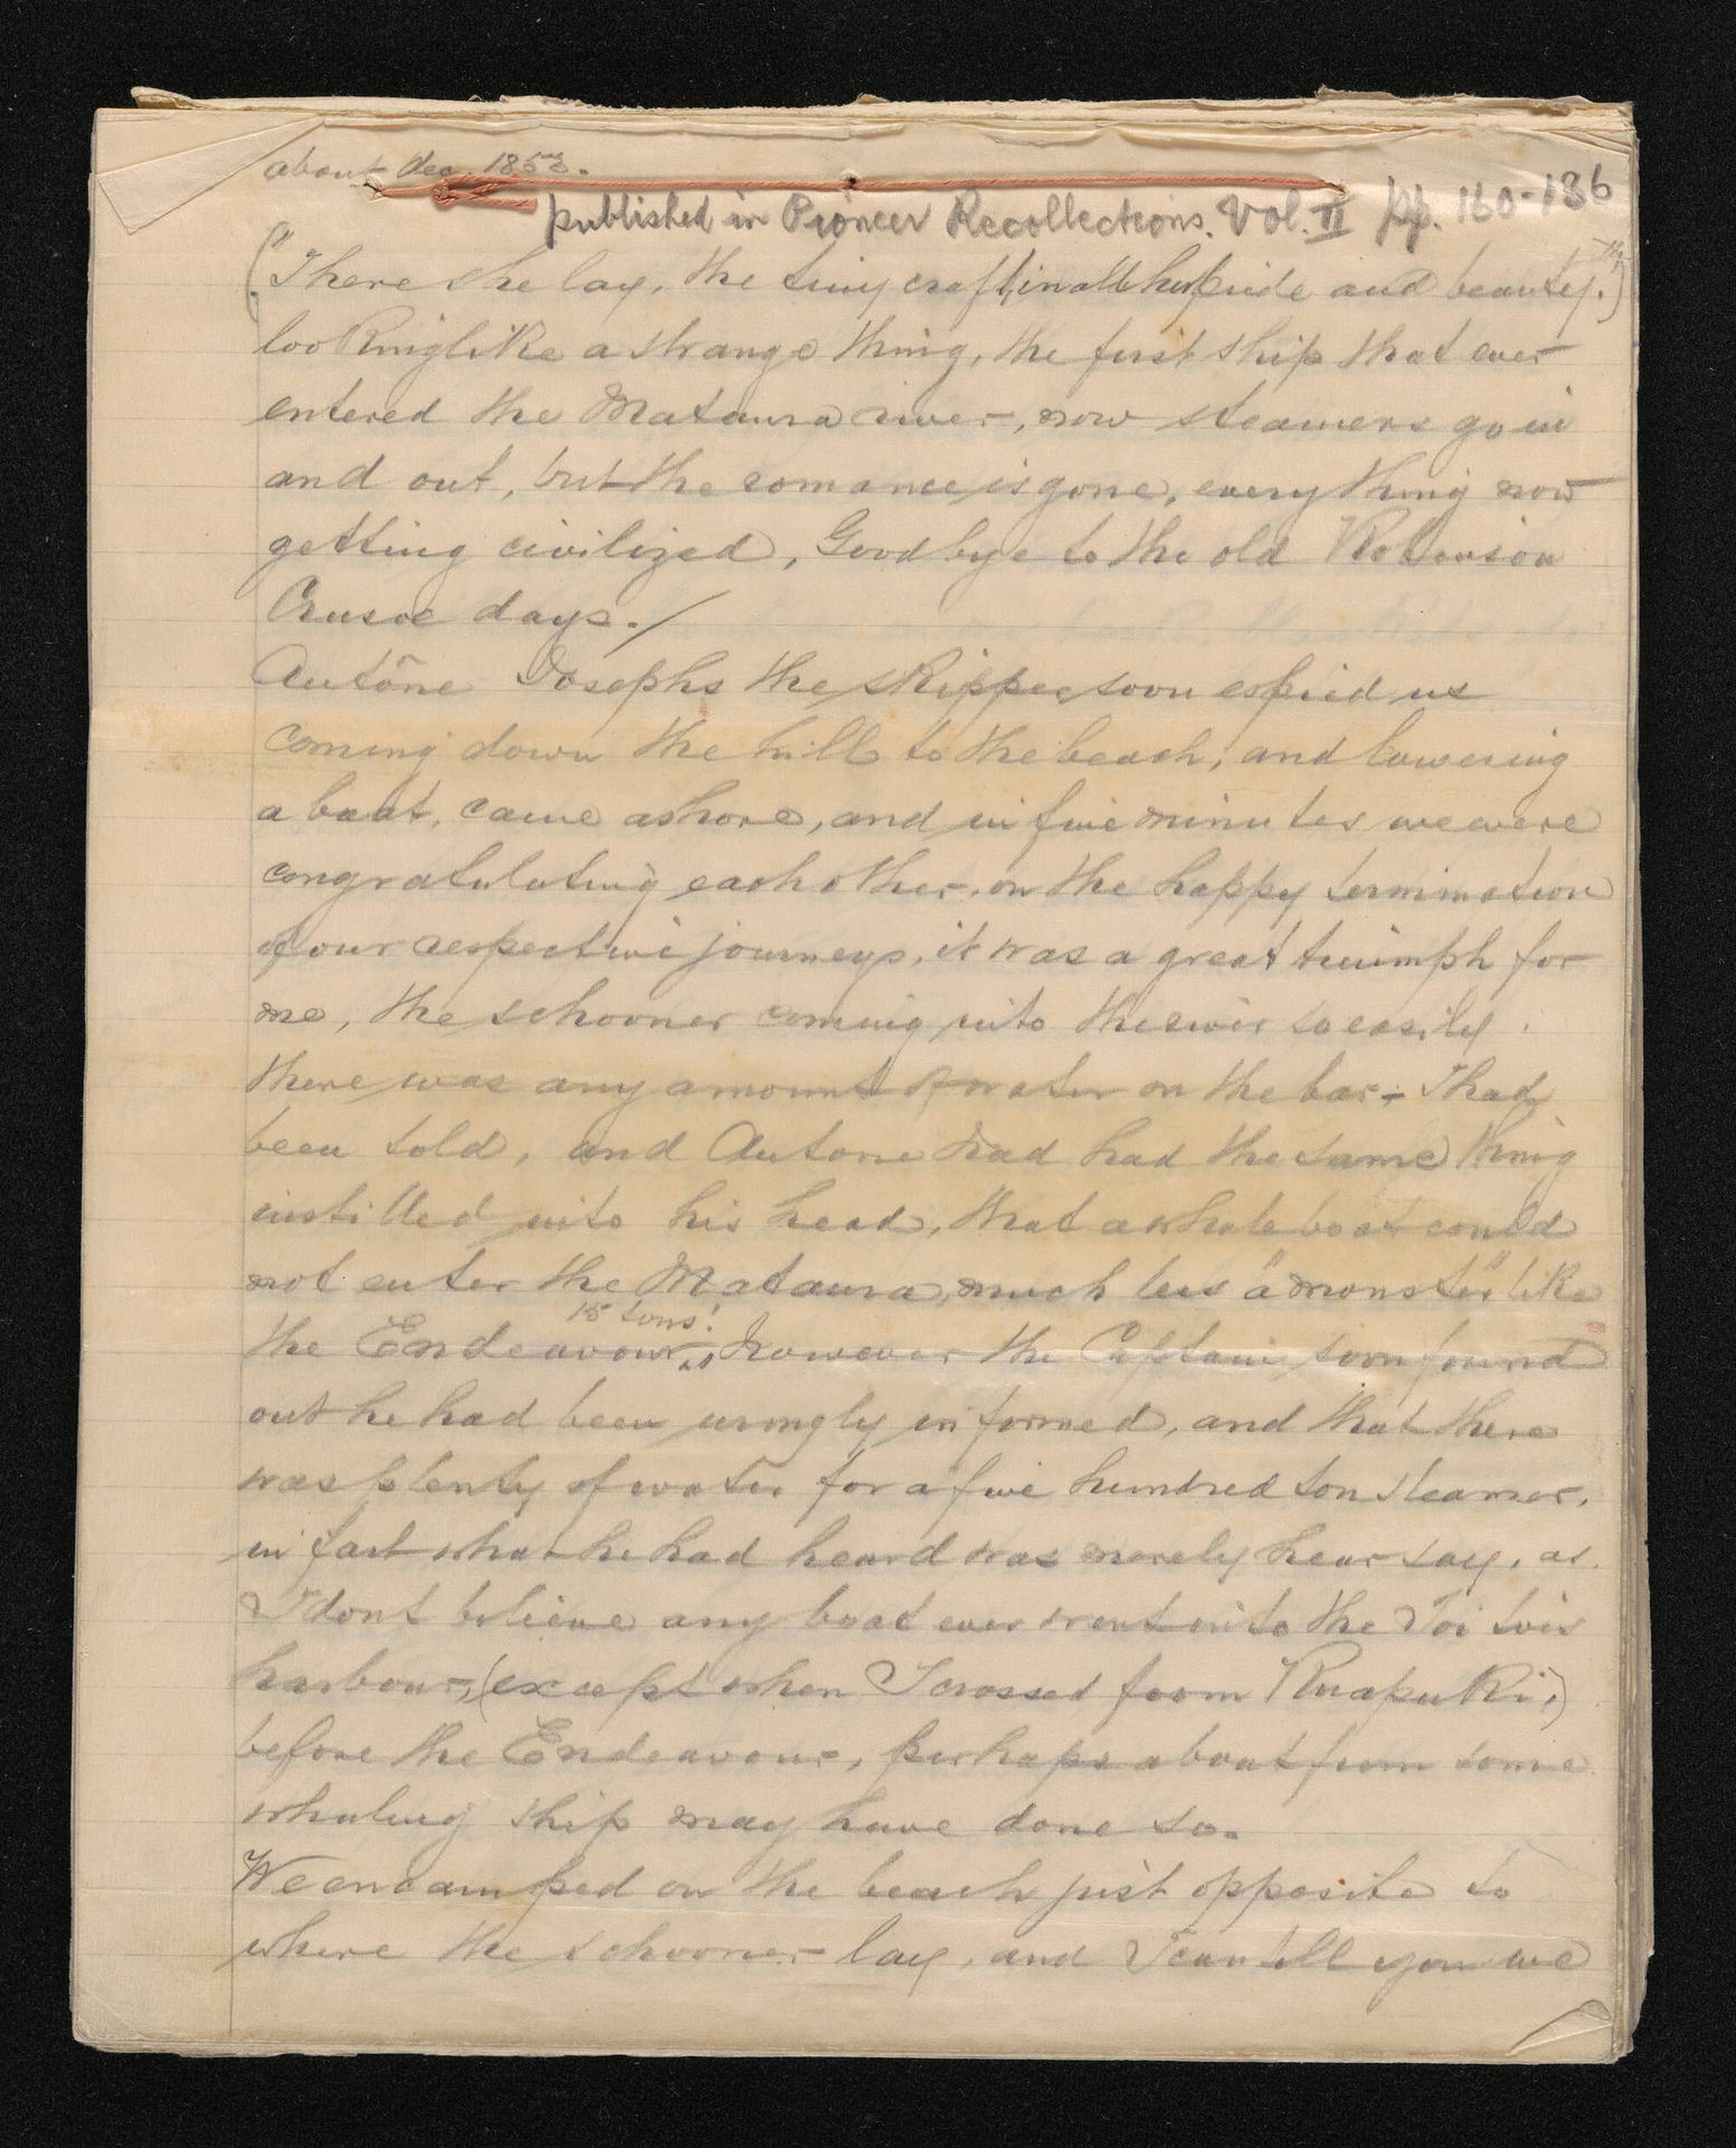 about Dec. 1853.
published in Pioneer Recollections. Vol. II pp. 160-186
("There she lay, the tiny craft, in all her pride and beauty.")
looking like a strange thing, the first ship that ever
entered the Mataura river, now steamers go in
and out, but the romance is gone, everything now
getting civilized, Goodbye to the old Robinson
Crusoe days./
Antône Josephs the skipper soon espied us
coming down the hill to the beach, and lowering
a boat, came ashore, and in five minutes we were
congratulating each other, on the happy termination
of our respective journeys, it was a great triumph for
me, the schooner coming into the river so easily.
there was any amount of water on the bar, I had
been told, and Antone had had the same thing
instilled into his head, that a whale boat could
not enter the Mataura, much less "a monster" like
15 tons!
the Endeavour, however the Captain soon found
out he had been wrongly informed, and that there
was plenty of water for a five hundred ton steamer,
in fact what he had heard was merely hear say, as
I dont believe any boat ever went into the Toi tois
harbour, (except when I crossed from Ruapuki,)
before the Endeavour, perhaps a boat from some
whaling ship may have done so.
We encamped on the beach just opposite to
where the schooner lay, and I can tell you we